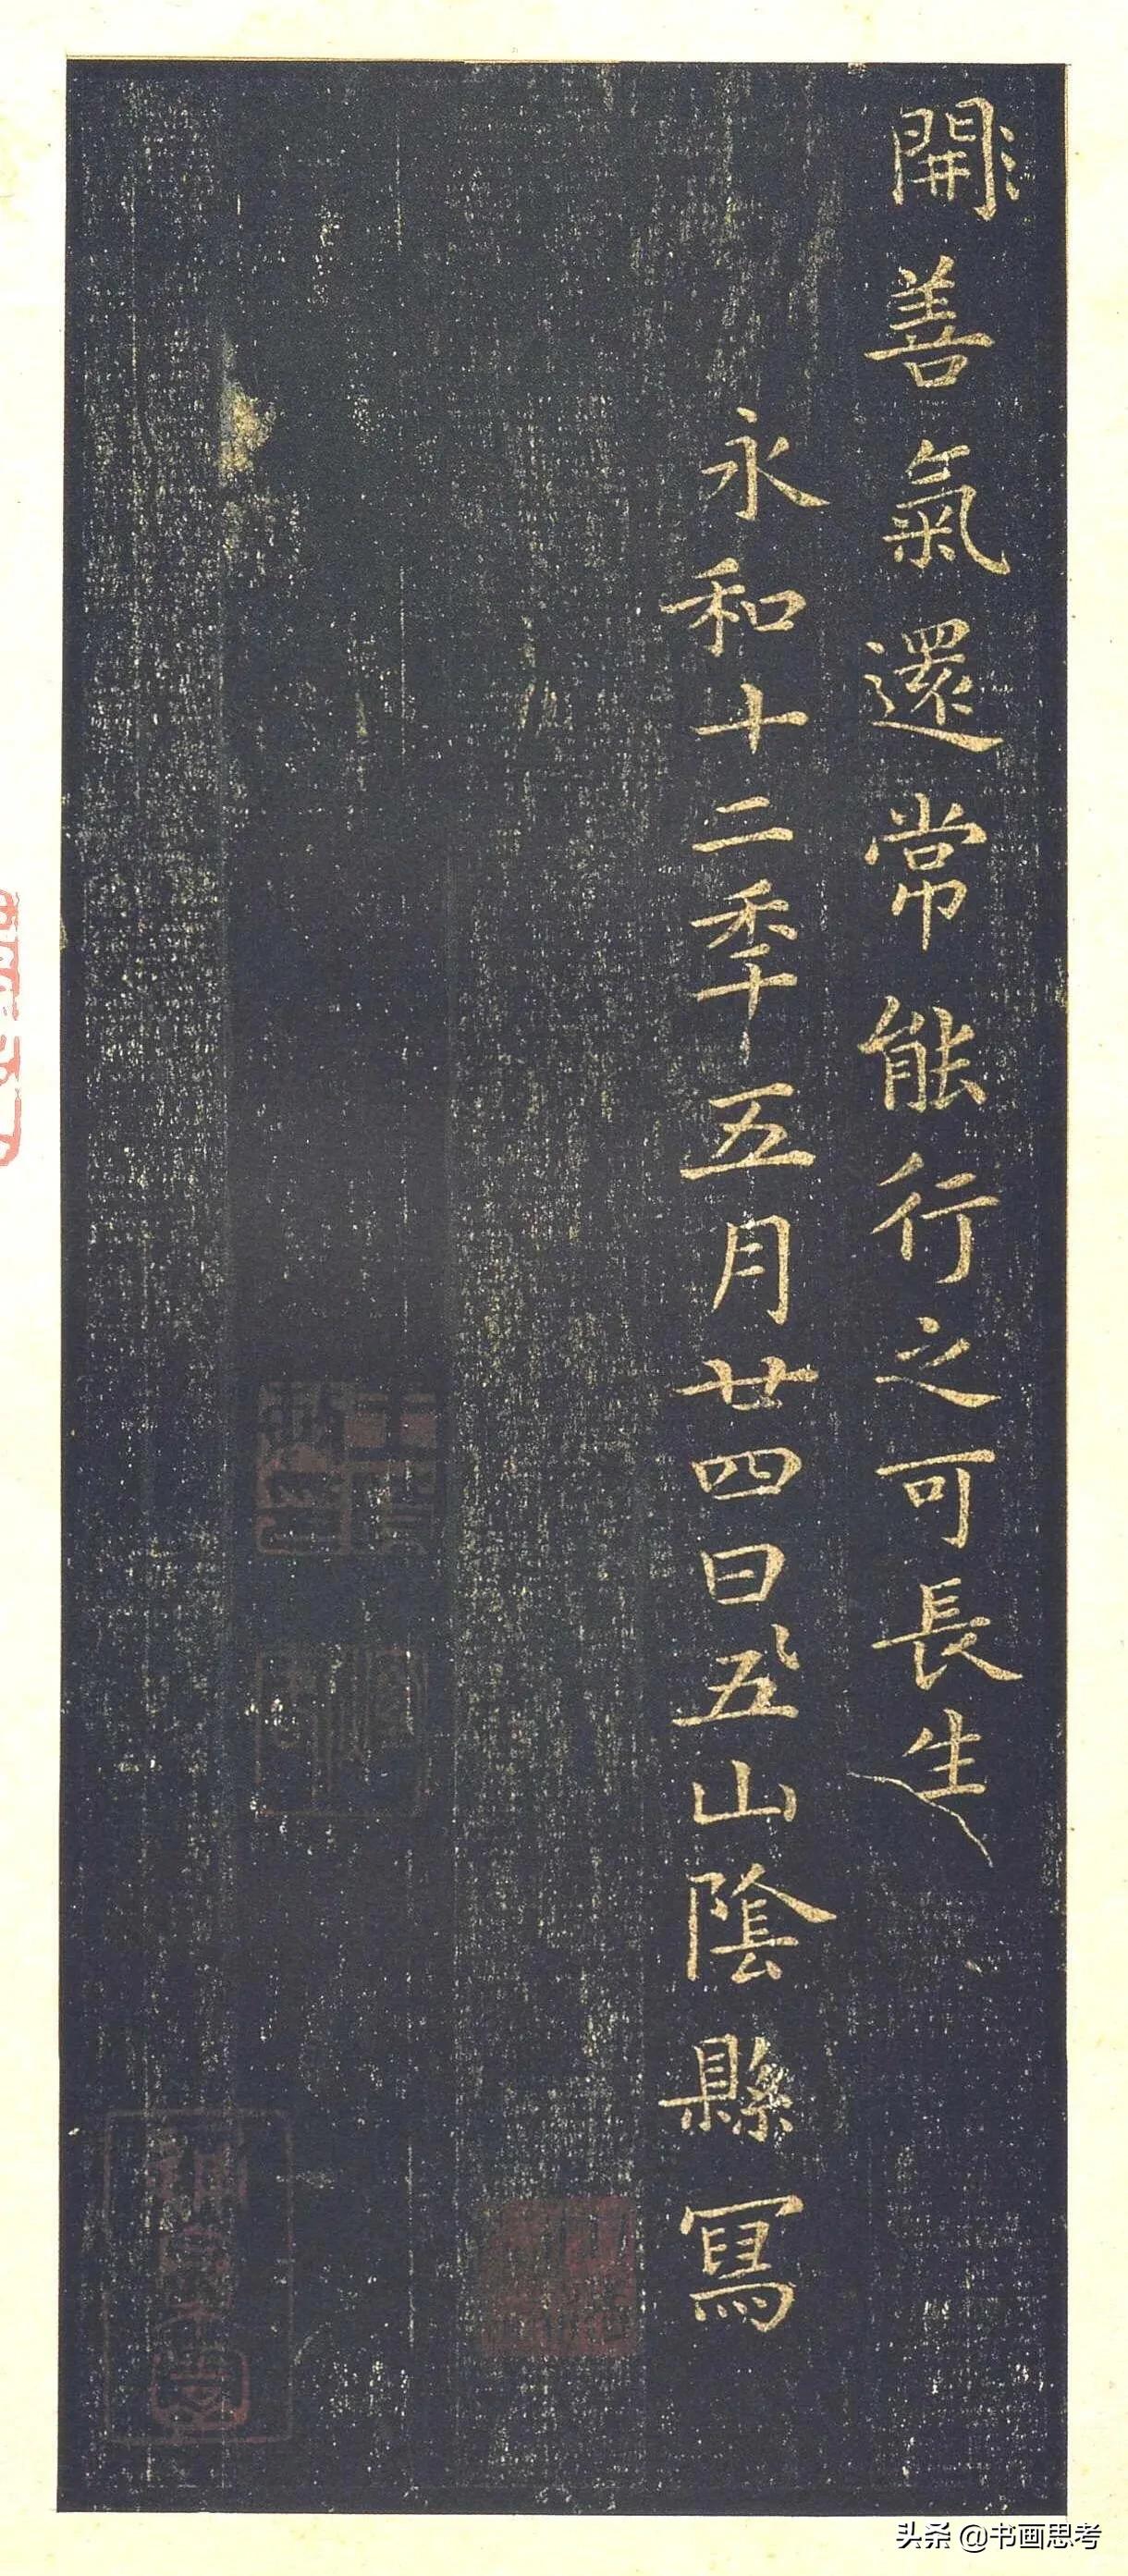 開善氣還常能行之可長生
永和十二秊五月廿四日五山陰縣寫
头条 @书画思考